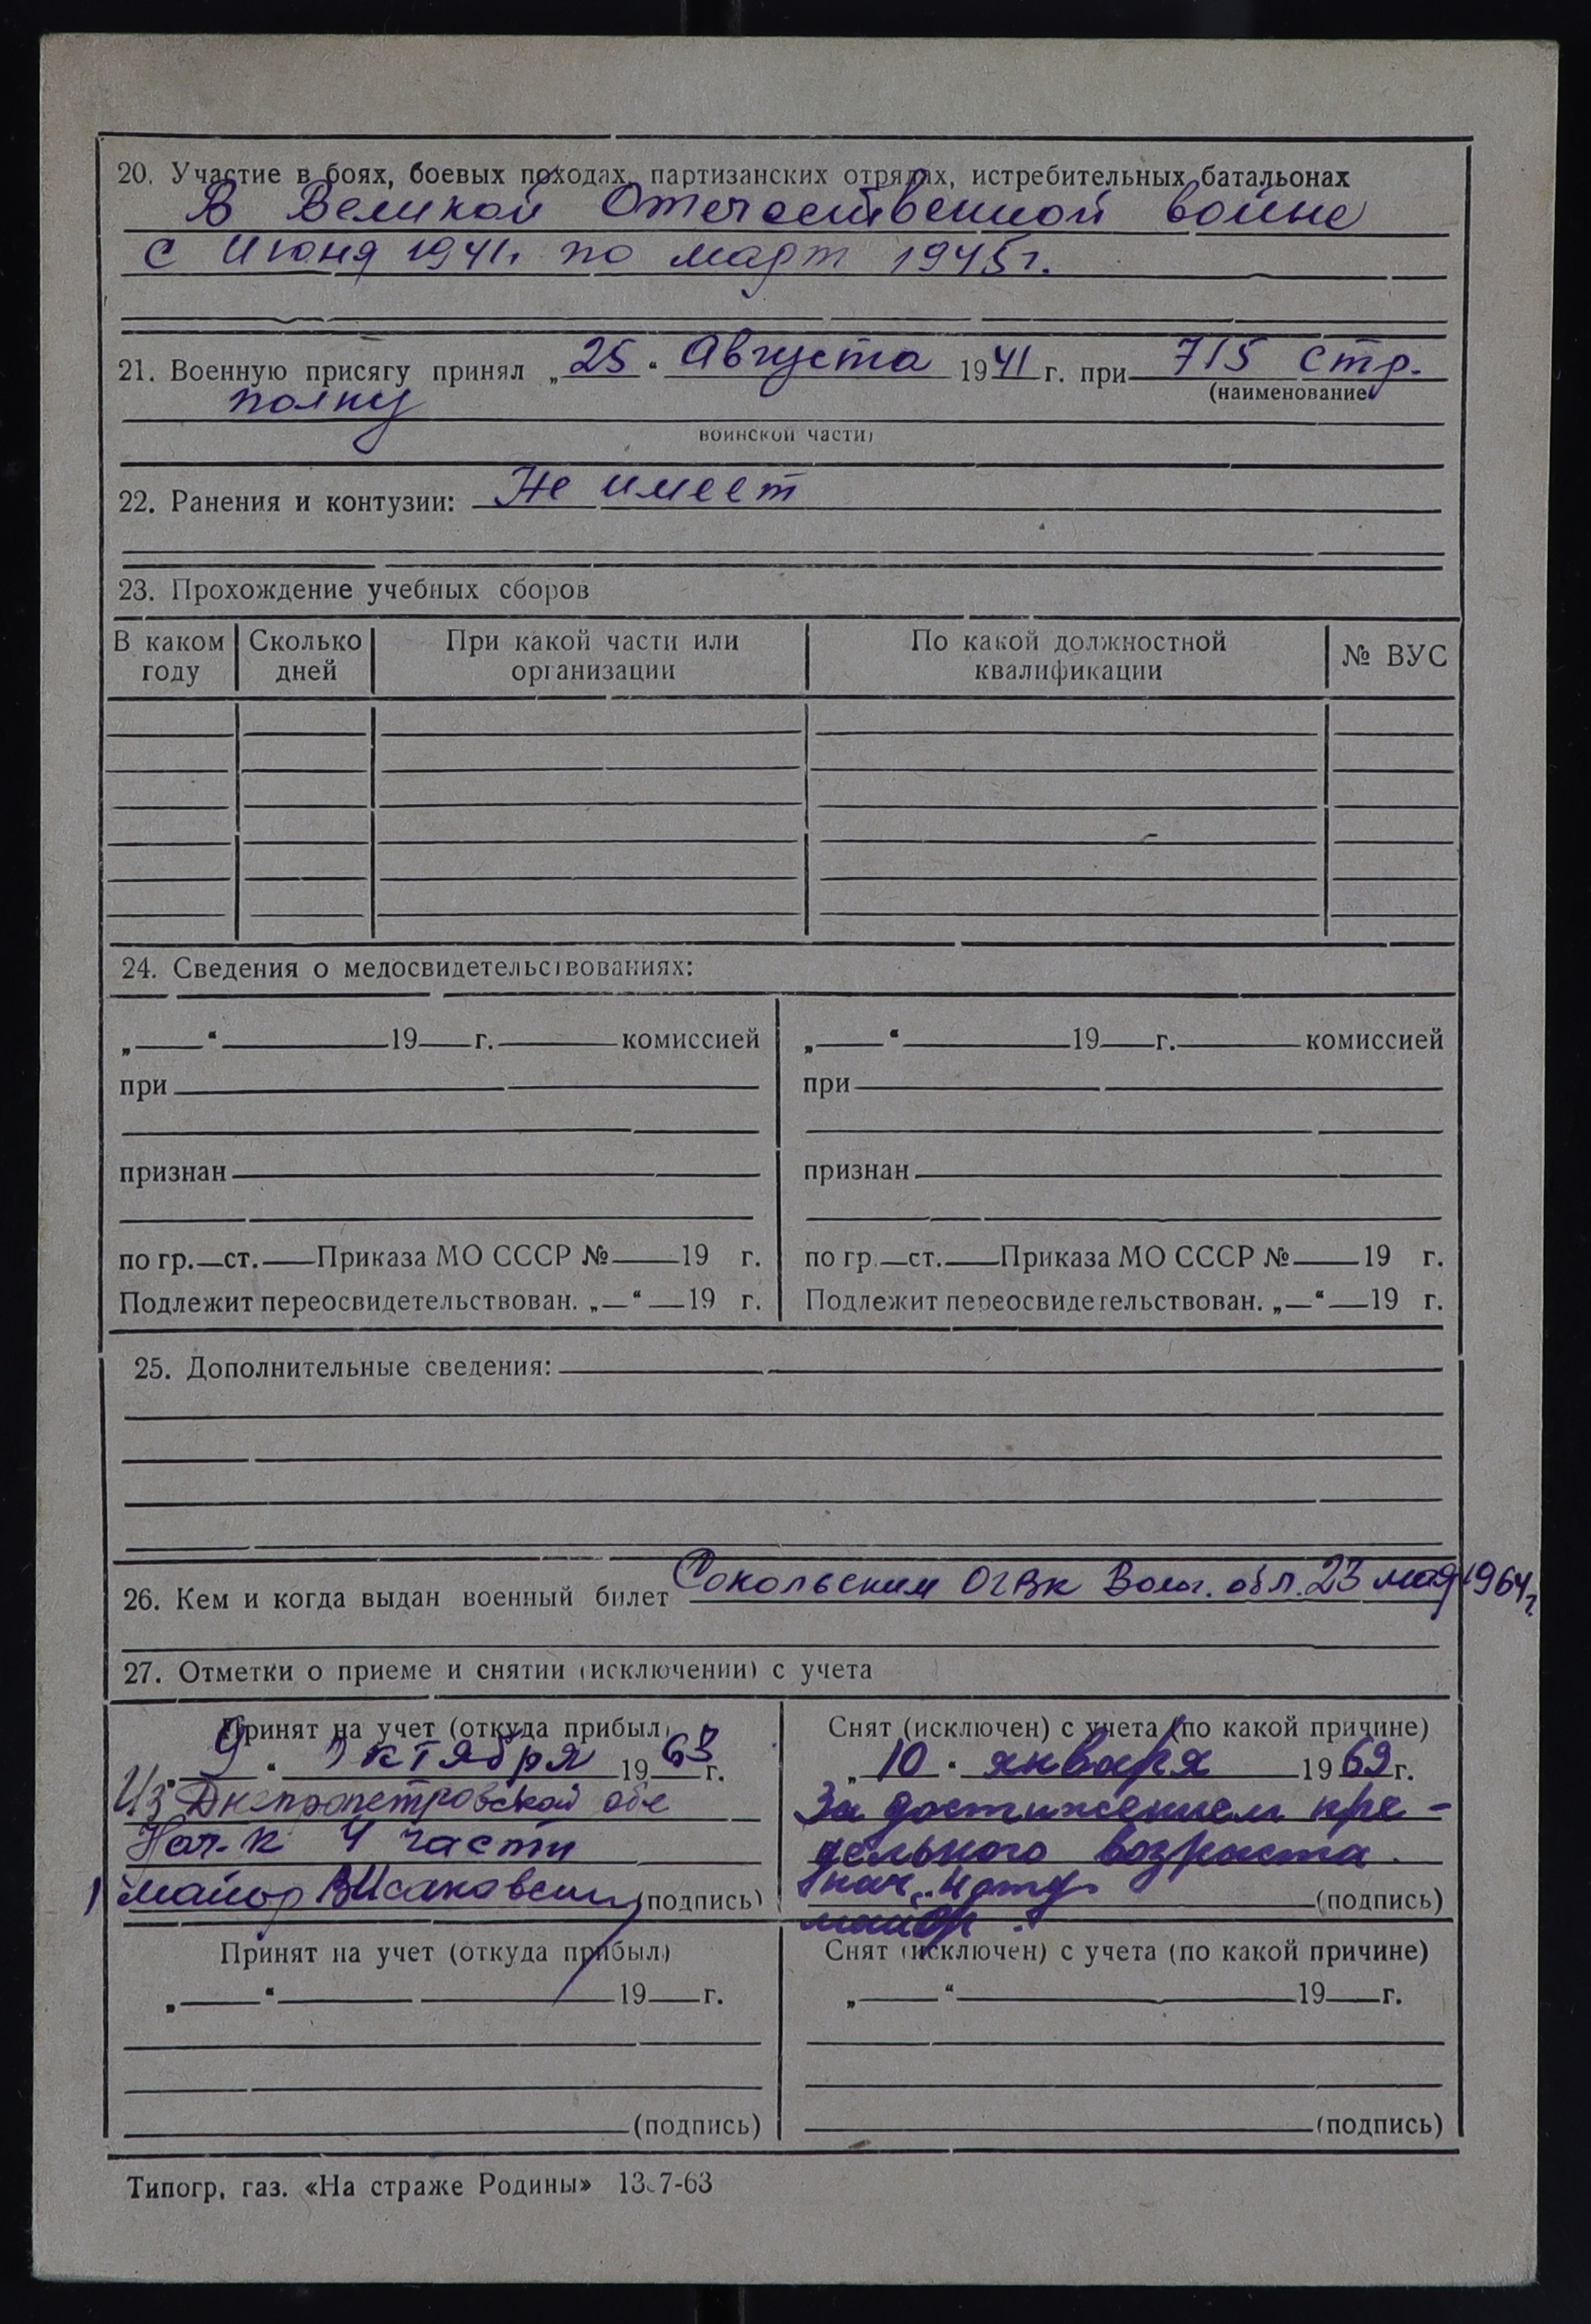 20. Участие в боях, боевых походах, партизанских отрядах, истребительных батальонах
В Великой Отечественной войне
с Июня 1941г по март 1945г.
21. Военную присягу принял „25“ Августа 1941 г. при 715 стр.
(наименование
полку
воинской части)
22. Ранения и контузии: Не имеет
23. Прохождение учебных сборов
В каком году Сколько дней При какой части или организации По какой должностной квалификации № ВУС
24. Сведения о медосвидетельствованиях:
„ “ 19 г. комиссией „ “ 19 г. комиссией
при при
признан признан
по гр. ст. Приказа МО СССР № 19 г. по гр. ст. Приказа МО СССР № 19 г.
Подлежит переосвидетельствован. „ “ 19 г. Подлежит переосвидетельствован. „ “ 19 г.
25. Дополнительные сведения:
26. Кем и когда выдан военный билет Сокольским ОГВК Волог. обл. 23 мая 1964г
27. Отметки о приеме и снятии (исключении) с учета
Принят на учет (откуда прибыл)
„9“ Октября 1963 г.
Из Днепропетровской обл
Нач-к 4 части
майор (подпись)
Снят (исключен) с учета (по какой причине)
„10“ января 1969 г.
За достижением пре-
дельного возраста.
нач. 4 отд
майор (подпись)
Принят на учет (откуда прибыл)
„ “ 19 г.
(подпись)
Снят (исключен) с учета (по какой причине)
„ “ 19 г.
(подпись)
Типогр. газ. «На страже Родины» 13.7-63